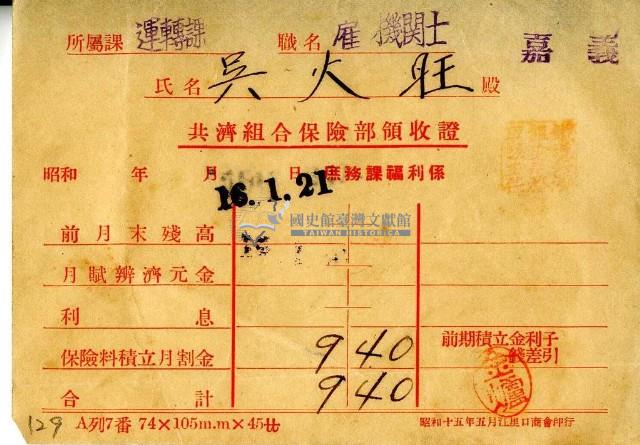 所屬課 運轉課 職名 雇 機關士 嘉義
氏名 吳火旺 殿
共濟組合保險部領收證
昭和 年 月 日 庶務課福利係
16.1.21
國史館臺灣文獻館
TAIWAN HISTORICA
前月末殘高
月賦辨濟元金
利息
保險料積立月割金 940 前期積立金利子
錢差引
合計 940
129 A列7番 74×105m.m×45 昭和十五年五月江里口商會印行